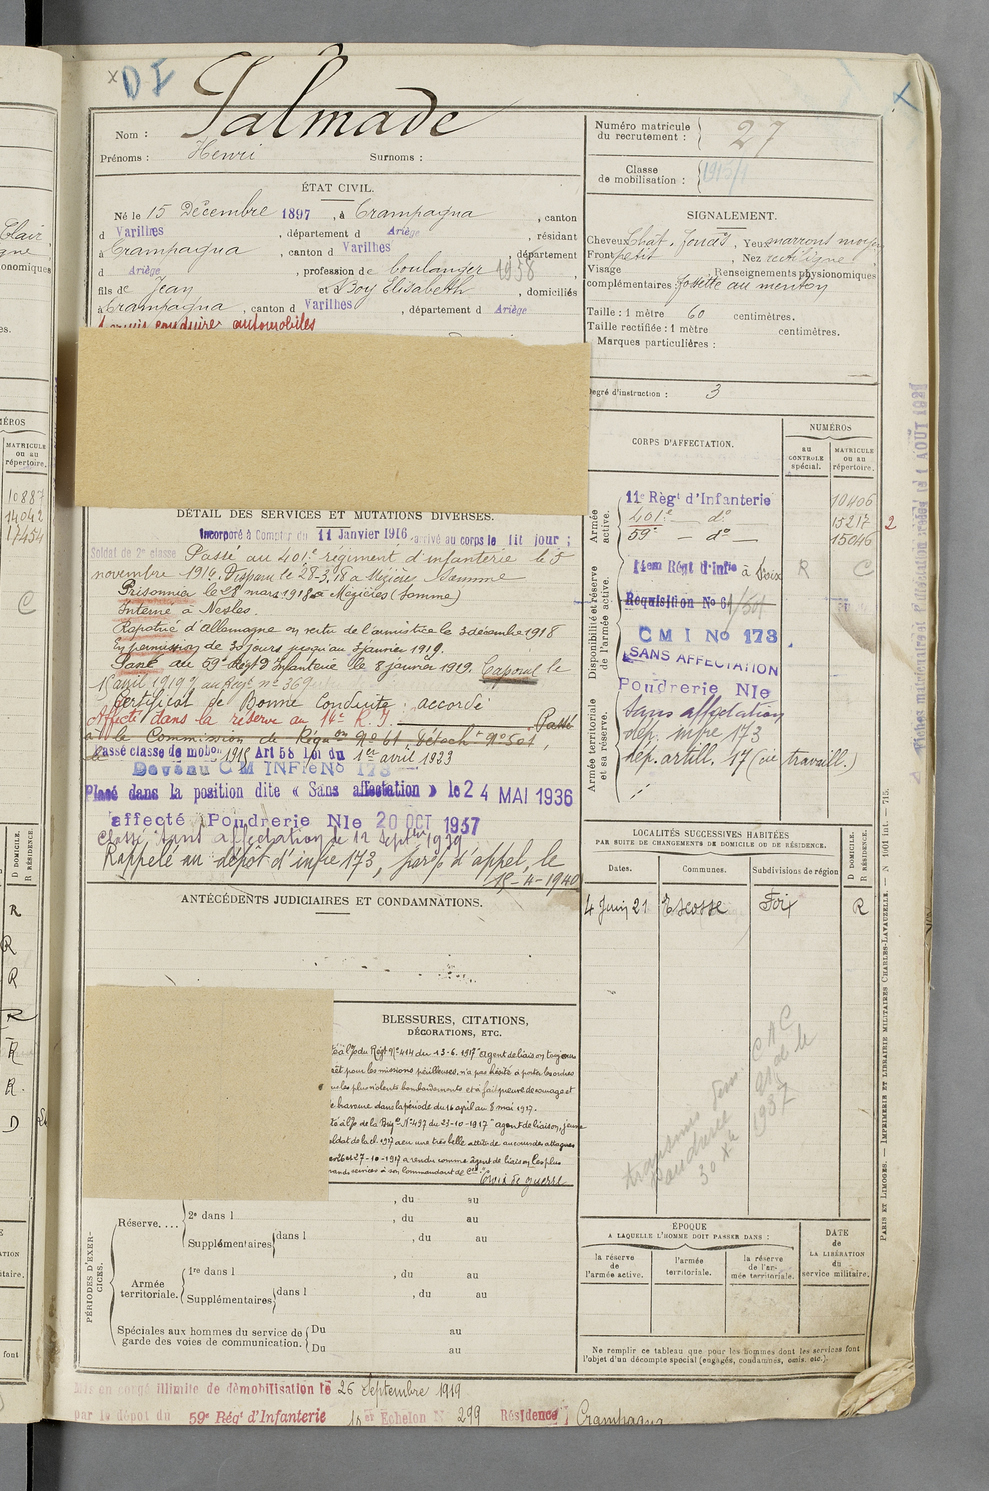 D I
Nom : Talmade
Prénoms : Henri Surnoms :
Numéro matricule du recrutement : 27
Classe de mobilisation : 1915/1
ÉTAT CIVIL.
Né le 15 Décembre 1897, à Crampagna, canton
d Varilhes, département d Ariège, résidant
à Crampagna, canton d Varilhes, département
d Ariège, profession de boulanger 1938
fils de Jean et d Boy Elisabeth, domiciliés
à Crampagna, canton d Varilhes, département d Ariège
Permis conduire automobiles
SIGNALEMENT.
Cheveux Chât. foncés, Yeux marrons moyen
Front petit, Nez rectiligne
Visage Renseignements physionomiques
complémentaires : fossette au menton
Taille : 1 mètre 60 centimètres.
Taille rectifiée : 1 mètre centimètres.
Marques particulières :
Degré d'instruction : 3
CORPS D'AFFECTATION.
NUMÉROS
au CONTROLE spécial.
MATRICULE ou au répertoire.
Armée active.
11e Régt d'Infanterie 10406
401e — do — 15217 2
59e — do — 15046
Disponibilité et réserve de l'armée active.
14em Regt d'Infie à Foix R C
Requisition No 61/501
C M I No 173
SANS AFFECTATION
Poudrerie Nle
Armée territoriale et sa réserve.
Sans affectation
dép. infie 173
dép. artill. 17 (cie travaill.)
DÉTAIL DES SERVICES ET MUTATIONS DIVERSES.
Incorporé à Compter du 11 Janvier 1916 arrivé au corps le dit jour ;
Soldat de 2e classe Passé au 401e régiment d'infanterie le 5
novembre 1916. Disparu le 28-3-18 à Mézières Somme
Prisonnier le 28 mars 1918 à Mézières (Somme)
Interné à Nesles.
Rapatrié d'Allemagne en vertu de l'armistice le 3 décembre 1918
En permission de 30 jours jusqu'au 3 janvier 1919.
Passé au 59e Régt d'Infanterie le 8 janvier 1919. Caporal le
15 avril 1919 au Régt no 369
Certificat de Bonne Conduite : accordé
Affecté dans la réserve au 14e R. I. Passé
à la Commission de Réquon No 61, Détacht No 501,
Passé classe de mobon 1915 Art 58 Loi du 1er avril 1923
Devenu C M INFie No 173
Placé dans la position dite « Sans affectation » le 24 MAI 1936
affecté Poudrerie Nle 20 OCT 1937
Classé Sans affectation le 12 Septbre 1939
Rappelé au dépôt d'infie 173, par o. d'appel, le
18-4-1940
ANTÉCÉDENTS JUDICIAIRES ET CONDAMNATIONS.
LOCALITÉS SUCCESSIVES HABITÉES
PAR SUITE DE CHANGEMENTS DE DOMICILE OU DE RÉSIDENCE.
Dates. Communes. Subdivisions de région D DOMICILE. R RÉSIDENCE.
4 Juin 21 Escosse Foix R
BLESSURES, CITATIONS,
DÉCORATIONS, ETC.
té à l'o du Régt No 414 du 13-6-1917 "agent de liaison toujours
rêt pour les missions périlleuses, n'a pas hésité à porter les ordres
us les plus violents bombardements et a fait preuve de courage et
e bravoure dans la période du 16 avril au 8 mai 1917.
té à l'o de la Brigde No 497 du 23-10-1917 "agent de liaison, jeune
oldat de la cl. 1917 a eu une très belle attitude au cours des attaques
27-10-1917 a rendu comme agent de liaison les plus
rands services à son commandant de Cie."
Croix de guerre
transmis dem.
Poudrerie
30 Xbre 1937
PÉRIODES D'EXERCICES.
, du au
Réserve.... 2e dans l , du au
Supplémentaires dans l , du au
Armée territoriale. 1re dans l , du au
Supplémentaires dans l , du au
Spéciales aux hommes du service de garde des voies de communication. Du au
Du au
ÉPOQUE
A LAQUELLE L'HOMME DOIT PASSER DANS :
la réserve de l'armée active.
l'armée territoriale.
la réserve de l'armée territoriale.
DATE de LA LIBÉRATION du service militaire.
Ne remplir ce tableau que pour les hommes dont les services font
l'objet d'un décompte spécial (engagés, condamnés, omis, etc.).
Mis en congé illimité de démobilisation le 26 Septembre 1919
par le dépôt du 59e Régt d'Infanterie 10er Echelon N 299 Résidence Crampagna
PARIS ET LIMOGES. — IMPRIMERIE ET LIBRAIRIE MILITAIRES CHARLES-LAVAUZELLE. — N 1061 int. — 715.
MATRICULE ou au répertoire.
10887
14042
17454
C
D DOMICILE.
R RÉSIDENCE.
R
R
R
R
R
R
D